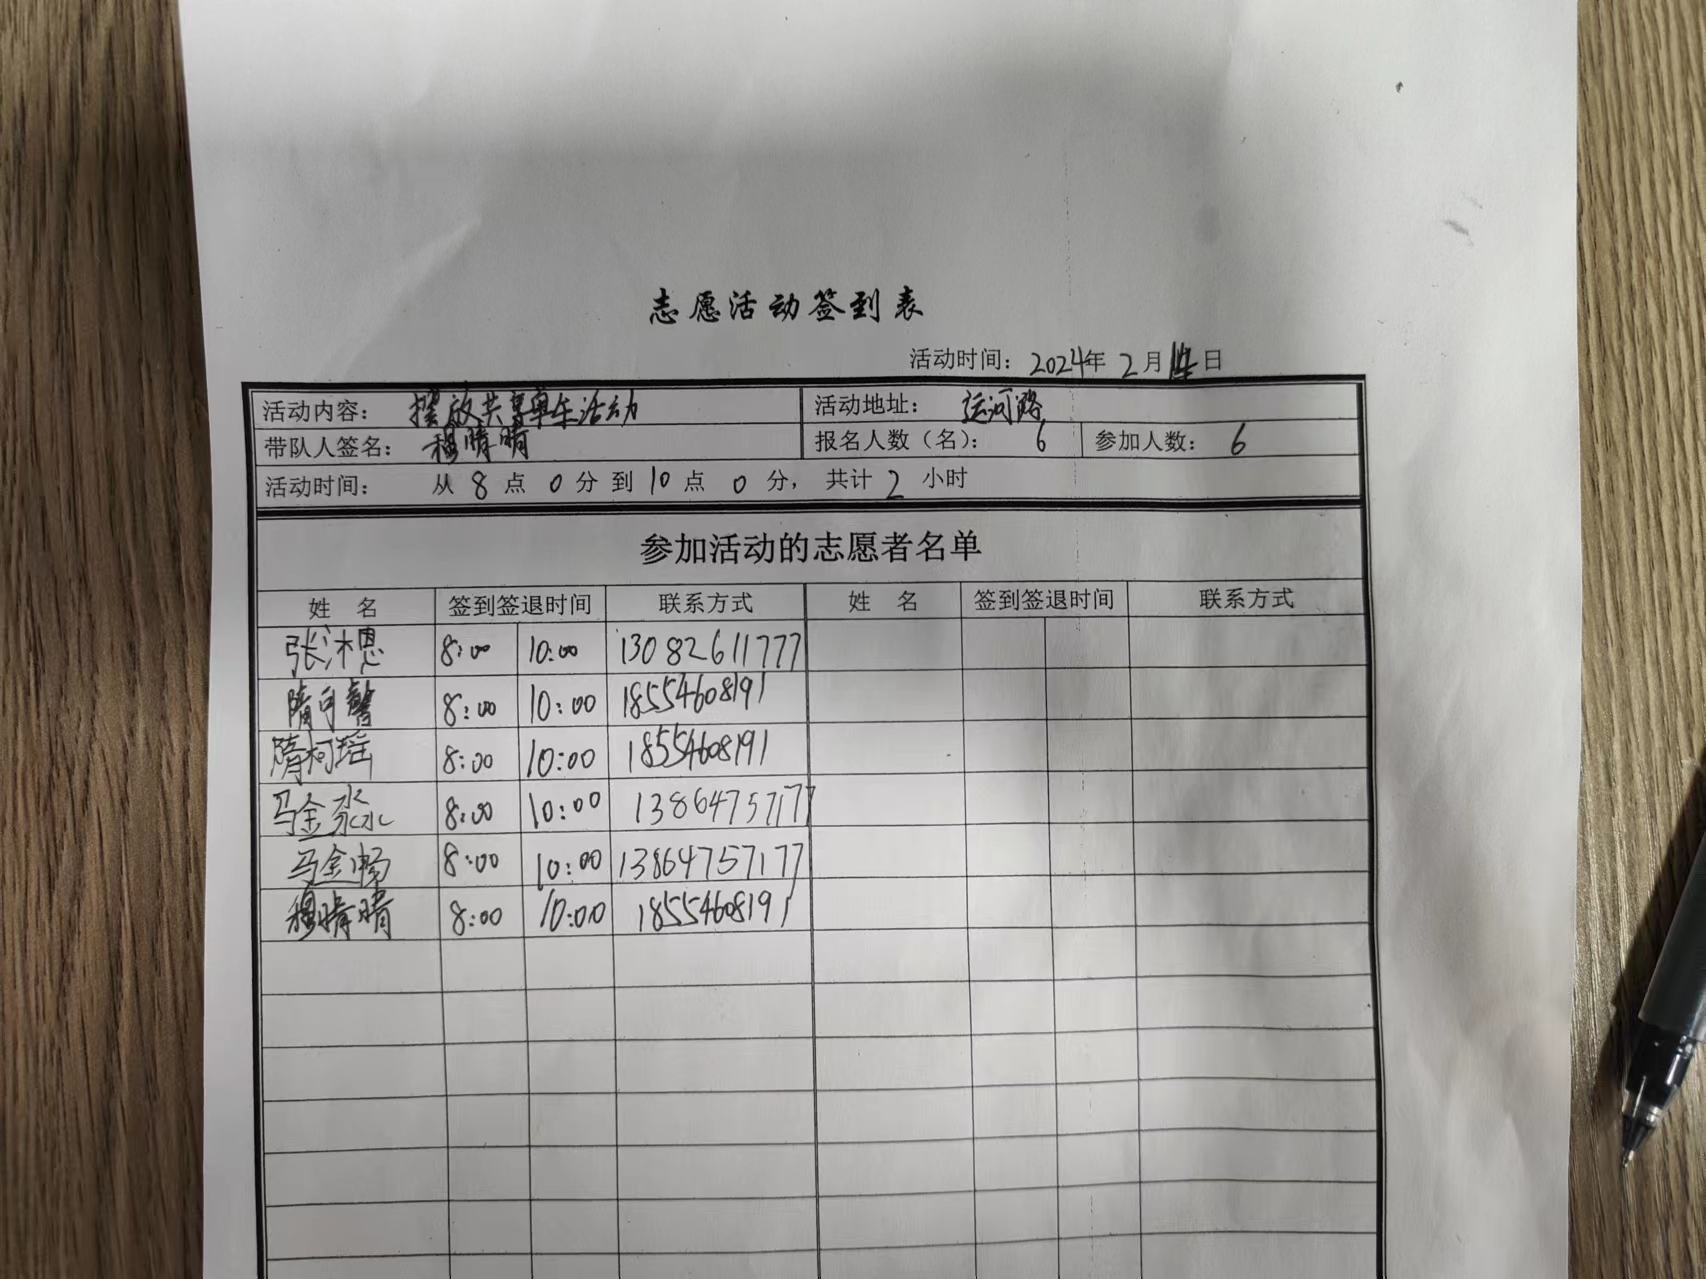 志愿活动签到表
活动时间：2024年 2月14日
活动内容： 摆放共享单车活动 活动地址： 运河路
带队人签名： 穆晴晴 报名人数（名）： 6 参加人数： 6
活动时间： 从 8 点 0 分 到 10 点 0 分， 共计 2 小时
参加活动的志愿者名单
姓 名 签到签退时间 联系方式 姓 名 签到签退时间 联系方式
张沐恩 8:00 10:00 13082611777
隋可馨 8:00 10:00 18554608191
隋柯瑶 8:00 10:00 18554608191
马金淼 8:00 10:00 13864757177
马金畅 8:00 10:00 13864757177
穆晴晴 8:00 10:00 18554608191